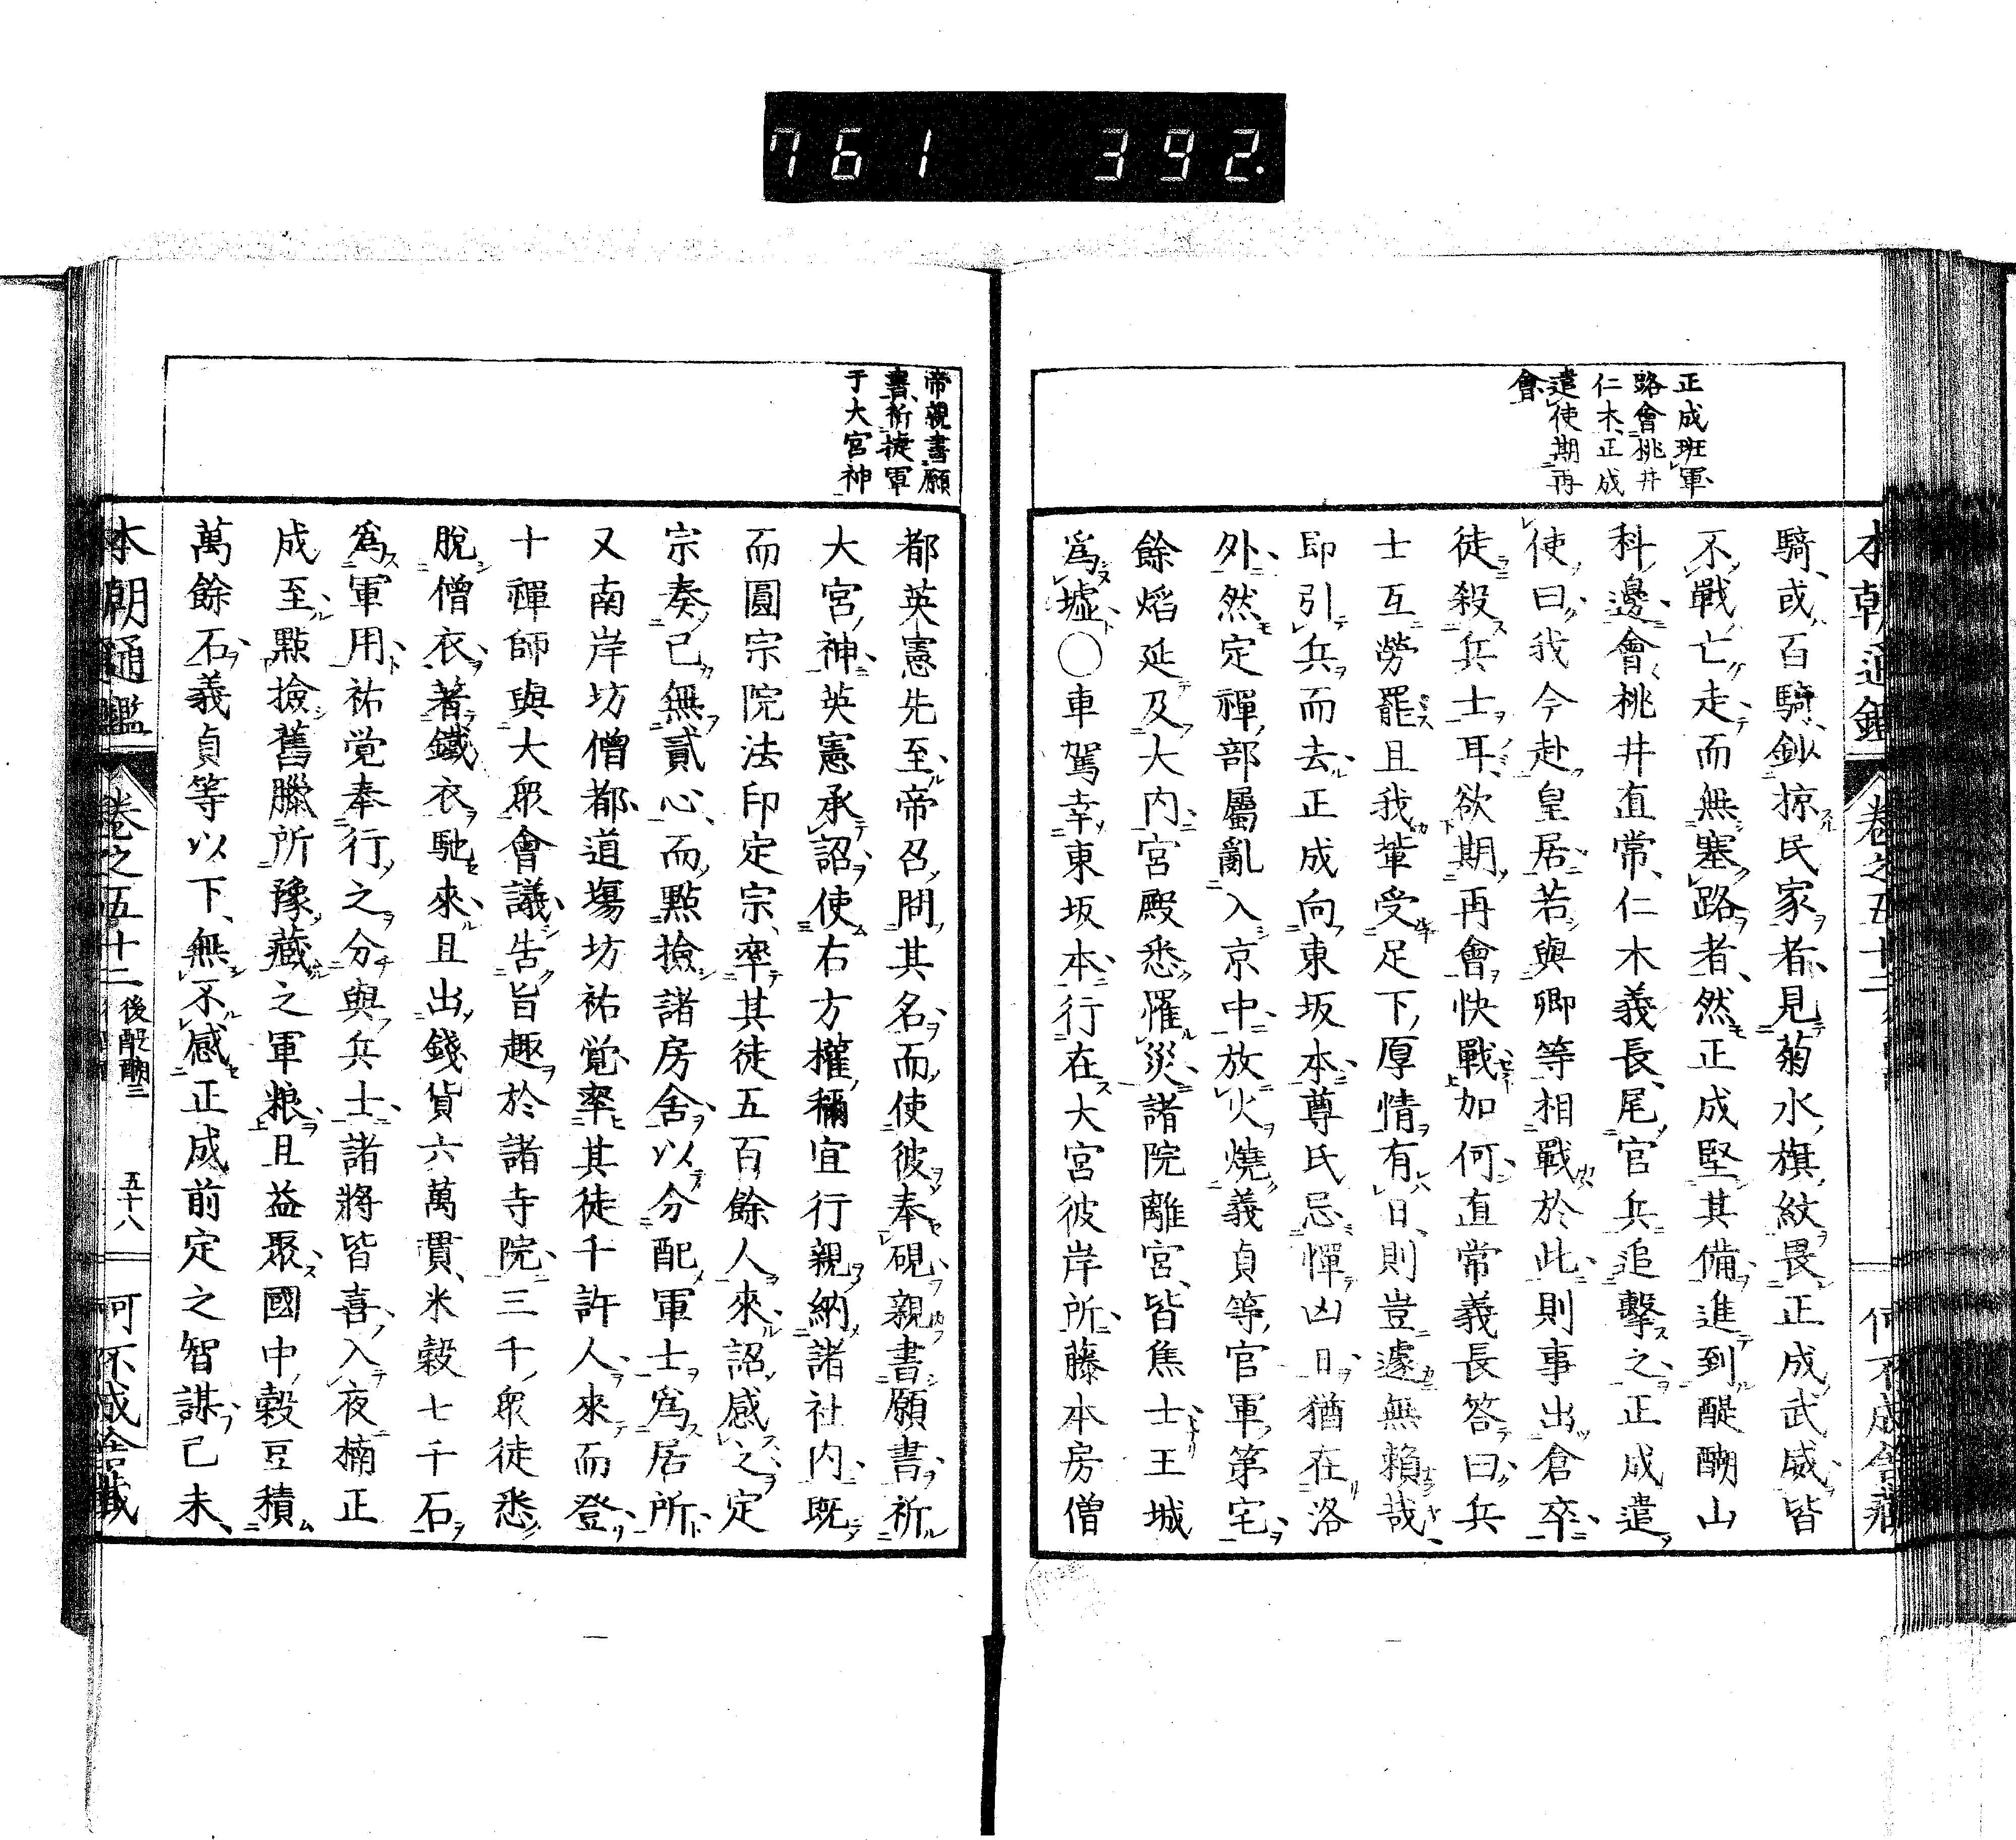 761 392.
正成班軍
路會桃井
仁木正成
遣使期再
會
騎或百騎鈔掠民家者見菊水旗紋畏正成武威皆
不戰亡走而無塞路者然正成堅其備進到醍醐山
科邊會桃井直常仁木義長尾官兵追擊之正成遣
使曰我今赴皇居若與卿等相戰於此則事出倉卒
徒殺兵士耳欲期再會快戰加何直常義長答曰兵
士互勞罷且我輩受足下厚情有日則豈遽無賴哉
即引兵而去正成向東坂本尊氏忌憚凶日猶在洛
外然定禪部屬亂入京中放火燒義貞等官軍第宅
餘焰延及大内宮殿悉罹災諸院離宮皆焦土王城
爲墟○車駕幸東坂本行在大宮彼岸所藤本房僧
帝親書願
書祈捷軍
于大宮神
都英憲先至帝召問其名而使彼奉硯親書願書祈
大宮神英憲承詔使右方權禰宜行親納諸社内既
而圓宗院法印定宗率其徒五百餘人來詔感之定
宗奏已無貳心而點撿諸房舍以分配軍士爲居所
又南岸坊僧都道場坊祐覚率其徒千許人來而登
十禪師與大眾會議告旨趣於諸寺院三千眾徒悉
脫僧衣著鐵衣馳來且出錢貨六萬貫米穀七千石
爲軍用祐覚奉行之分與兵士諸將皆喜入夜楠正
成至點撿舊臘所豫藏之軍粮且益聚國中穀豆積
萬餘石義貞等以下無不感正成前定之智謀己未
本朝通鑑 卷之五十二 後醍醐三 五十八 何不成舍藏